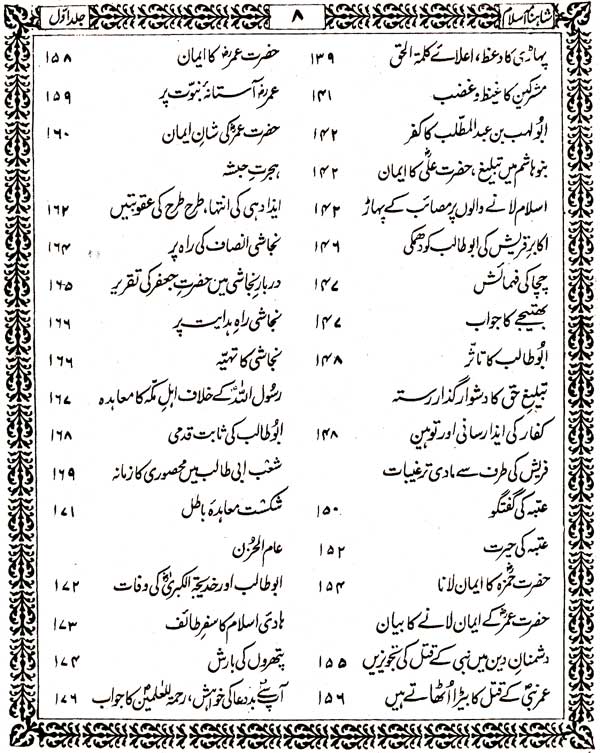 شاہنامۂ اسلام ۸ جلد اوّل
پہاڑی کا وعظ، اعلائے کلمۃ الحق ۱۳۹
مشرکین کا غیظ و غضب ۱۴۱
ابولہب بن عبدالمطّلب کا کفر ۱۴۲
بنو ہاشم میں تبلیغ، حضرت علیؓ کا ایمان ۱۴۲
اسلام لانے والوں پر مصائب کے پہاڑ ۱۴۳
اکابرِ قریش کی ابوطالب کو دھمکی ۱۴۶
چچا کی فہمائش ۱۴۷
بھتیجے کا جواب ۱۴۷
ابوطالب کا تاثّر ۱۴۸
تبلیغِ حق کا دشوار گذار رستہ
کفار کی ایذا رسانی اور توہین ۱۴۸
قریش کی طرف سے مادی ترغیبات
عتبہ کی گفتگو ۱۵۰
عتبہ کی حیرت ۱۵۲
حضرت حمزہؓ کا ایمان لانا ۱۵۴
حضرت عمرؓ کے ایمان لانے کا بیان
دشمنانِ دین میں نبی کے قتل کی تجویزیں ۱۵۵
عمر نبیؐ کے قتل کا بیڑا اُٹھاتے ہیں ۱۵۶
حضرت عمرؓ کا ایمان ۱۵۸
عمرؓ آستانۂ نبوّت پر ۱۵۹
حضرت عمرؓ کی شانِ ایمان ۱۶۰
ہجرتِ حبشہ
ایذا دہی کی انتہا، طرح طرح کی عقوبتیں ۱۶۲
نجاشی انصاف کی راہ پر ۱۶۴
دربارِ نجاشی میں حضرتِ جعفر کی تقریر ۱۶۵
نجاشی راہِ ہدایت پر ۱۶۶
نجاشی کا تہیّہ ۱۶۶
رسُول اللہؐ کے خلاف اہلِ مکّہ کا معاہدہ ۱۶۷
ابوطالب کی ثابت قدمی ۱۶۸
شعبِ ابی طالب میں محصوری کا زمانہ ۱۶۹
شکستِ معاہدۂ باطل ۱۷۱
عام الحزن
ابوطالب اور خدیجۃ الکبریٰؓ کی وفات ۱۷۲
ہادیِ اسلام کا سفرِ طائف ۱۷۳
پتھروں کی بارش ۱۷۴
آپؐ سے بددعا کی خواہش، رحمۃ للعٰلمینؐ کا جواب ۱۷۶